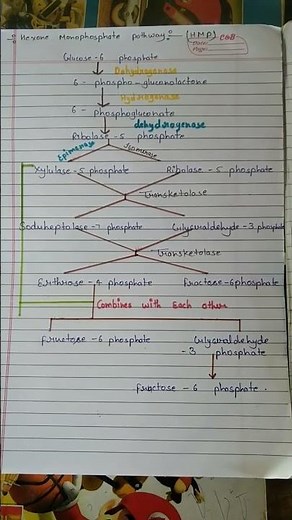 Hexose Monophosphate pathway :- (HMP)
Glucose - 6 phosphate
Dehydrogenase
6 - phospho - gluconolactone
Hydrogenase
6 - phosphogluconate
dehydrogenase
Ribolase - 5 phosphate
Epimerase Isomerase
Xylulase - 5 phosphate Ribolase - 5 phosphate
transketolase
Soduheptolase - 7 phosphate Gulyceraldehyde - 3 phosphate
transketolase
Erthrose - 4 phosphate Fructose - 6 phosphate
Combines with Each other
fructose - 6 phosphate Gulyceraldehyde
- 3 phosphate
fructose - 6 phosphate.